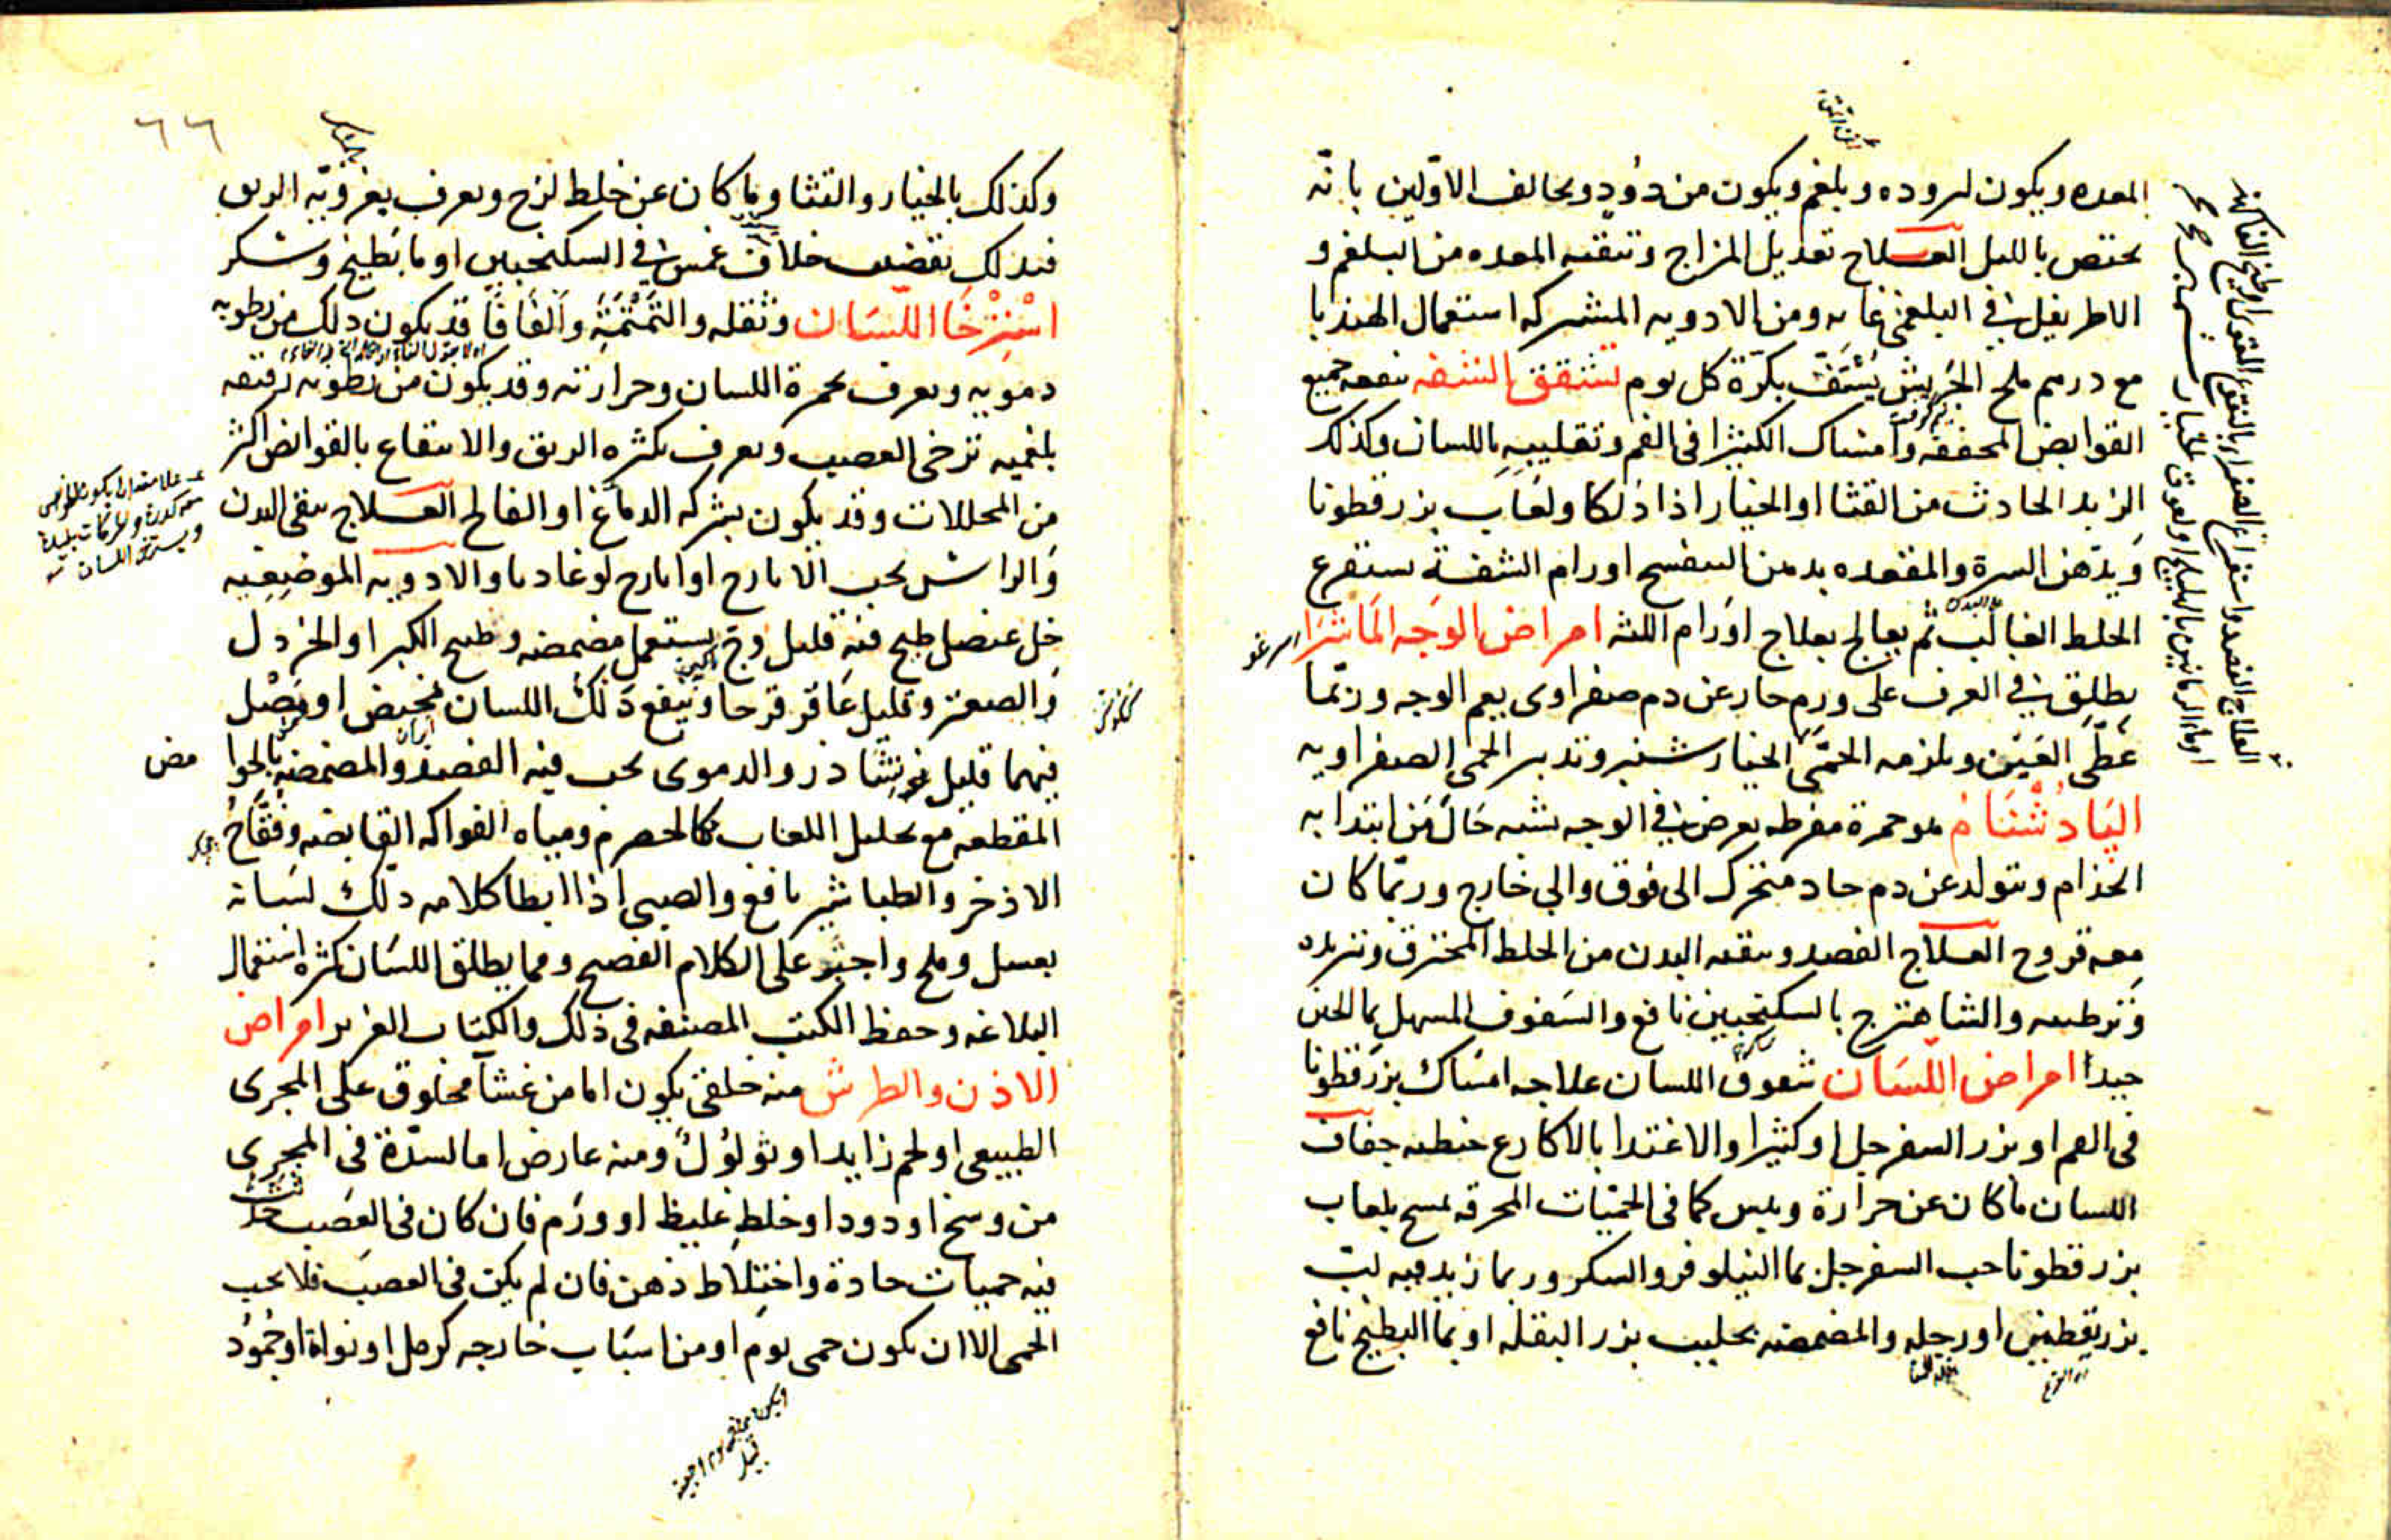 المعده ويكون لبروده وبلغم ويكون من دود ويخالف الاولين بانه
يختص بالليل العلاج تعديل المزاج وتنقيه المعده من البلغم و
الاطريفل في البلغمي غايه ومن الادويه المشتركه استعمال الهندبا
مع درهم ملح الجريش يستف بكرة كل يوم تشقق الشفه ينفعه جميع
القوابض المجففه وامساك الكثيرا في الفم وتقليبه باللسان وكذلك
الزبد الحادث من القثا او الخيار اذا دلكا ولعاب بزرقطونا
ويدهن السرة والمقعده بدهن البنفسج اورام الشفة يستفرع
الخلط الغالب ثم يعالج بعلاج اورام اللثه امراض الوجه الماشرا
يطلق في العرف على ورم حار عن دم صفراوى يعم الوجه وربما
غطى العين ويلزمه الحمى الخيار شنبر وتدبير الحمى الصفراويه
البادشنام هو حمرة مفرطه يعرض في الوجه يشبه حال من ابتدا به
الجذام ويتولد عن دم حاد متحرك الى فوق والى خارج وربما كان
معه قروح العلاج الفصد وتنقيه البدن من الخلط المحترق وتبريده
وترطيبه والشاهترج بالسكنجبين نافع والسفوف المسهل بما الجبن
جيدا امراض اللسان شقوق اللسان علاجه امساك بزرقطونا
في الفم او بزر السفرجل او كثيرا والاغتدا بالاكارع حنطيه جفاف
اللسان ما كان عن حرارة ويبس كما في الحميات المحرقه يمسح بلعاب
بزرقطونا حب السفرجل بما النيلوفر والسكر وربما زيد فيه لب
بزر يقطين او رجله والمضمضه بحليب بزر البقله او بما البطيخ نافع
٦٦
وكذلك بالخيار والقثا وما كان عن خلط لزج ويعرف بغرويه الريق
فبدلك بقضيب خلاف غمس في السكنجبين او ما بطيخ وسكر
استرخا اللسان وثقله والتمتمة والفافا قد يكون دلك من رطوبه
دمويه ويعرف بحمرة اللسان وحرارته وقد يكون من رطوبه رقيقه
بلغميه ترخى العصب ويعرف بكثره الريق والانتفاع بالقوابض اكثر
من المحللات وقد يكون بشركه الدماغ او الفالج العلاج ينقى البدن
والراس بحب الايارج او ايارج لوغاديا والادويه الموضعيه
خل عنصل طبخ فيه قليل وج يستعمل مضمضه وطبيخ الكبر او الخردل
والصعتر وقليل عاقر قرحا وينفع دلك اللسان بمخيض او بصل
فيهما قليل نوشادر والدموى يجب فيه الفصد والمضمضه بالحوا
مض
المقطعه مع تحليل اللعاب كالحصرم ومياه الفواكه القابضه وفقاح
الاذخر والطباشير نافع والصبى اذا ابطا كلامه دلك لسانه
بعسل وملح واجبر على الكلام الفصيح ومما يطلق اللسان كثره استعمال
البلاغه وحفظ الكتب المصنفه في ذلك والكتاب العزيز امراض
الاذن والطرش منه خلقى يكون اما من غشا مخلوق على المجرى
الطبيعى او لحم زايد او ثولول ومنه عارض اما لسدة في المجرى
من وسخ او دود او خلط غليظ او ورم فان كان في العصب حدث
فيه حميات حادة واختلاط ذهن فان لم يكن في العصب فلا يجب
الحمى الا ان يكون حمى يوم او من اسباب خارجه كرمل او نواة او جمود